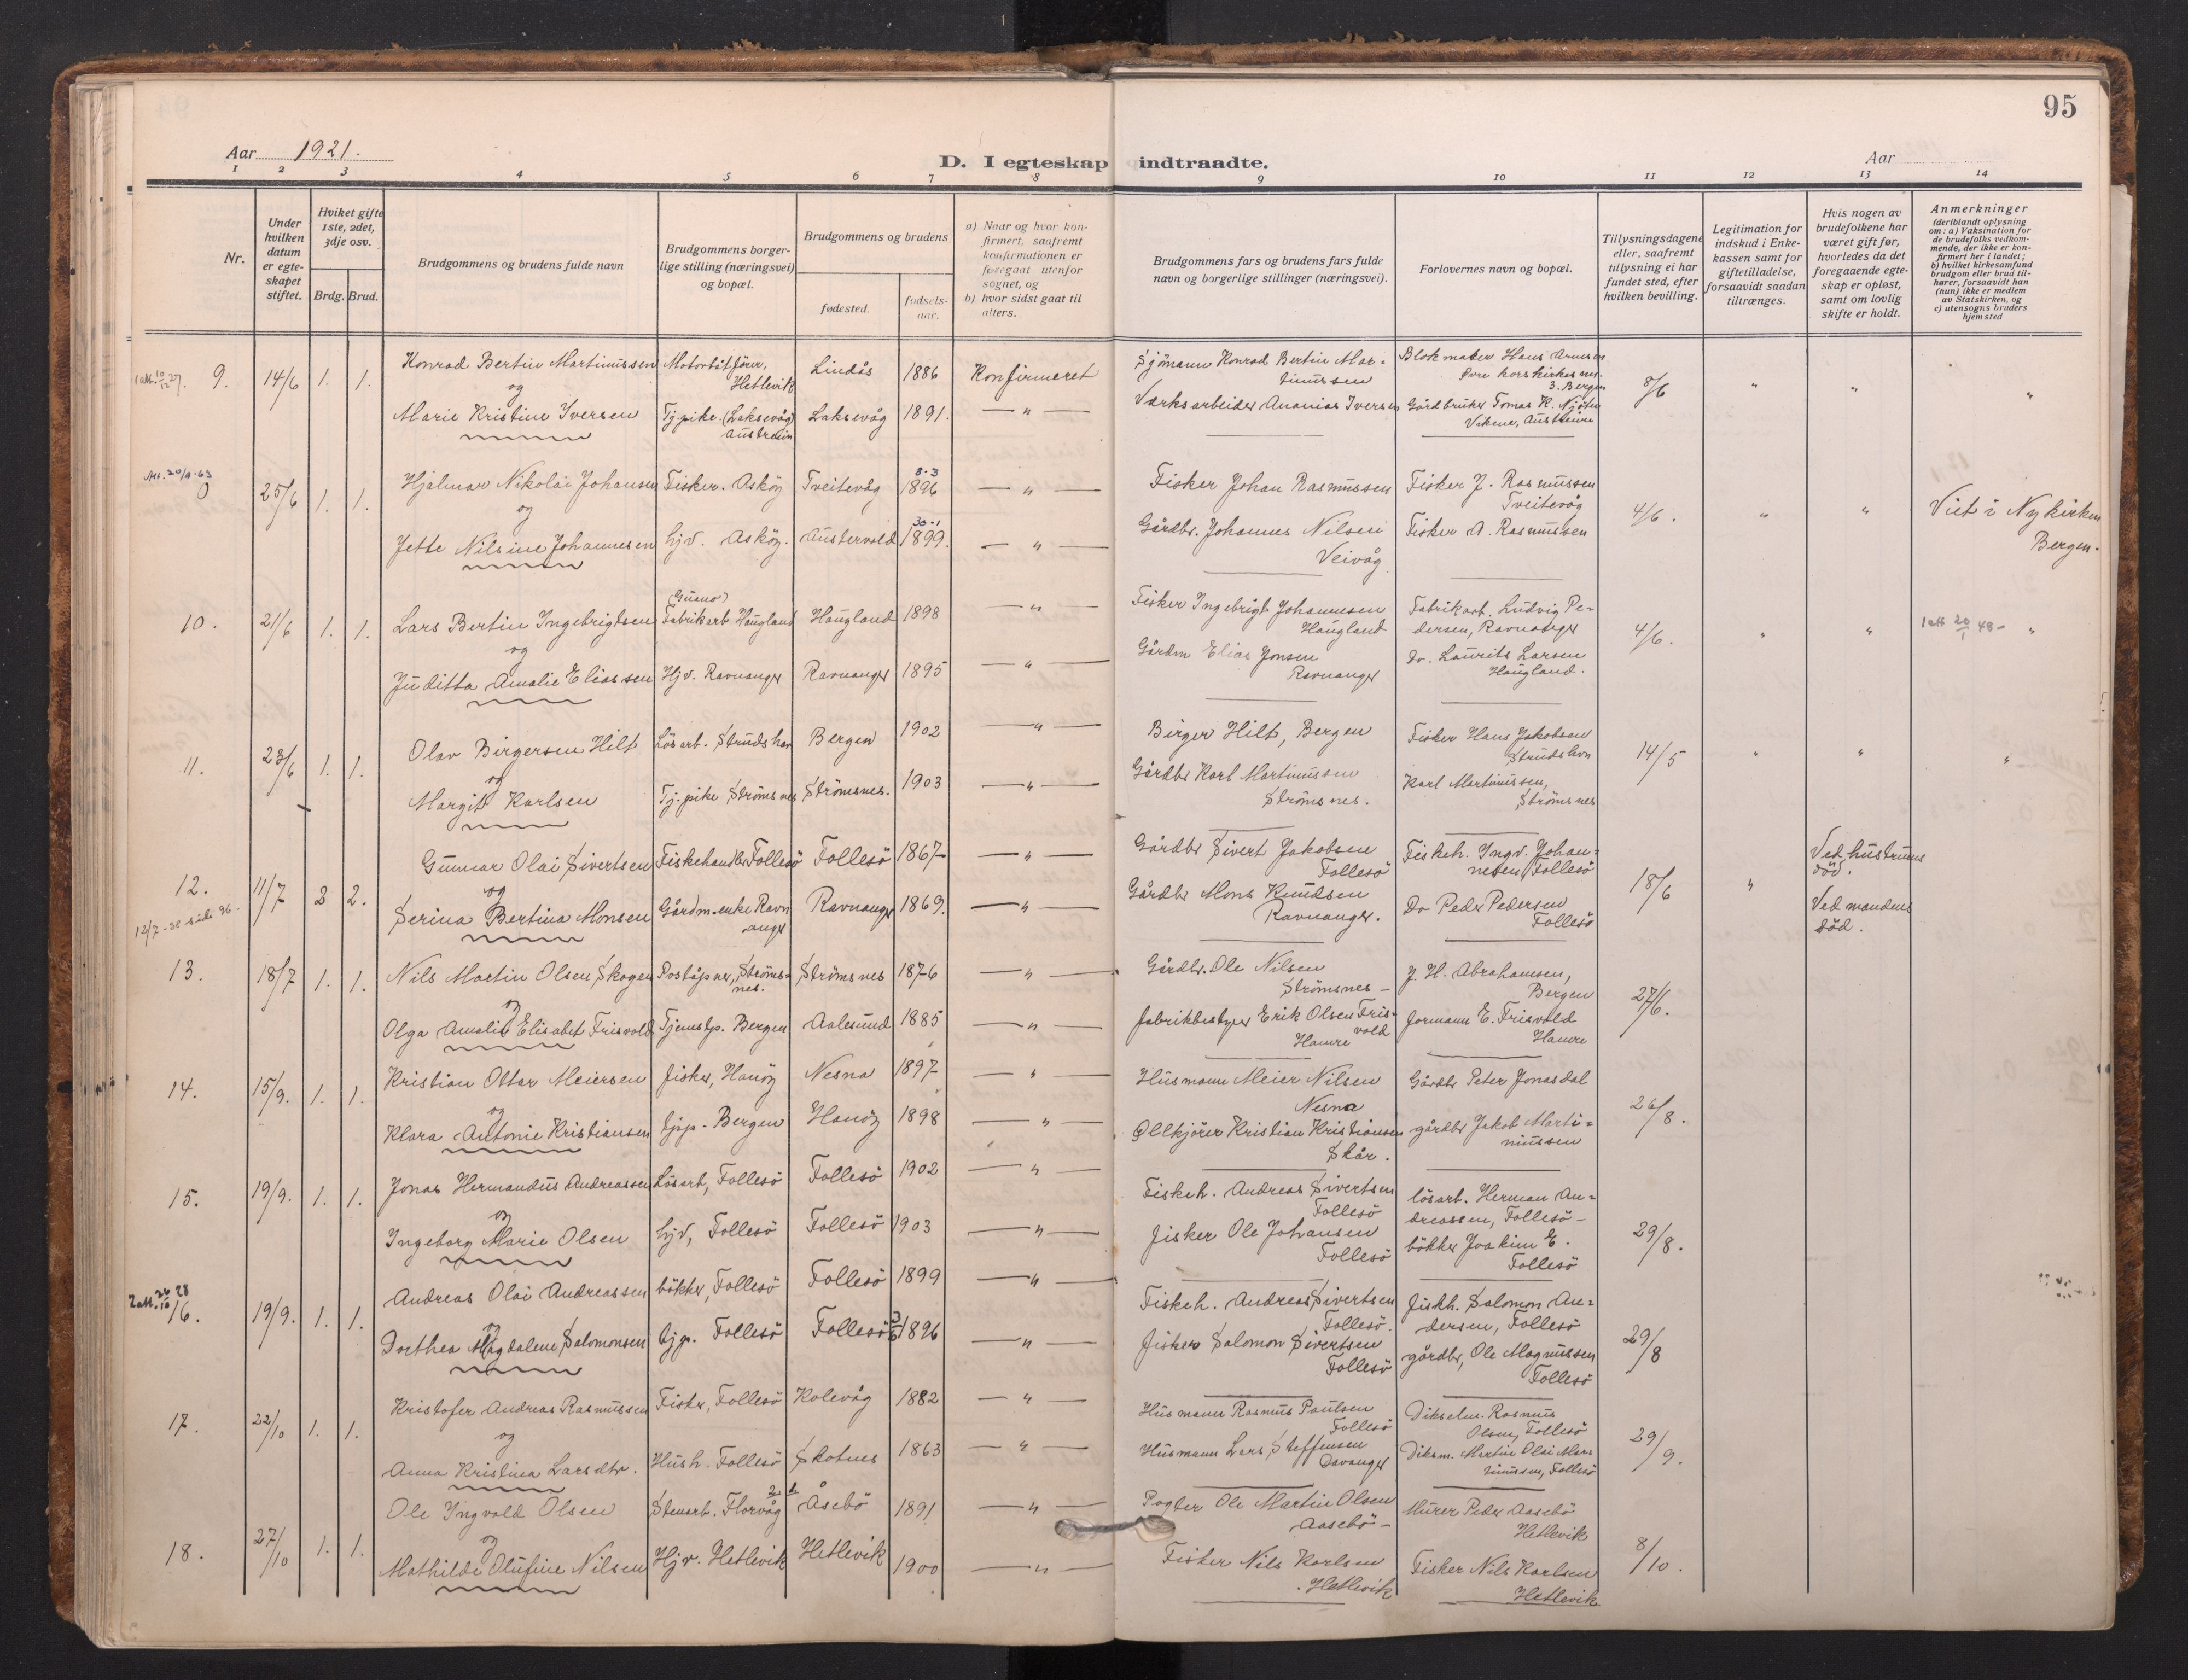 95
Aar 1921.
D. I egteskap indtraadte.
Aar
1 2 3 4 5 6 7 8 9 10 11 12 13 14
Nr.
Under hvilken datum er egteskapet stiftet.
Hviket gifte 1ste, 2det, 3dje osv.
Brdg. Brud.
Brudgommens og brudens fulde navn
Brudgommens borgerlige stilling (næringsvei) og bopæl.
Brudgommens og brudens
fødested.
fødselsaar.
a) Naar og hvor konfirmert, saafremt konfirmationen er foregaat utenfor sognet, og
b) hvor sidst gaat til alters.
Brudgommens fars og brudens fars fulde navn og borgerlige stillinger (næringsvei).
Forlovernes navn og bopæl.
Tillysningsdagene eller, saafremt tillysning ei har fundet sted, efter hvilken bevilling.
Legitimation for indskud i Enkekassen samt for giftetilladelse, forsaavidt saadan tiltrænges.
Hvis nogen av brudefolkene har været gift før, hvorledes da det foregaaende egteskap er opløst, samt om lovlig skifte er holdt.
Anmerkninger
(deriblandt oplysning om: a) Vaksination for de brudefolks vedkommende, der ikke er konfirmert her i landet; b) hvilket kirkesamfund brudgom eller brud tilhører, forsaavidt han (hun) ikke er medlem av Statskirken, og c) utensogns bruders hjemsted
1 att. 10/12 27. 9. 14/6 1. 1. Konrad Bertin Martinussen Motorbåtfører, Hetlevik Lindås 1886 Konfirmeret Sjömann Konrad Bertin Martinussen Blokmaker Hans Arnesen Øvre Korskirkealm. 3. Bergen 8/6 " " "
og
Marie Kristine Iversen Tj.pike. (Laksevåg) Laksevåg 1891. — " — Værksarbeider Ananias Iversen Gårdbruker Tomas K.
Att. 20/9-63 0 25/6 1. 1. Hjalmar Nikolai Johansen Fisker. Asköy Tveitevåg 8-3 1896 — " — Fisker Johan Rasmussen Fisker J. Rasmussen Tveitevåg 4/6. " " Viet i Nykirken Bergen.
og
Jette Nilsine Johannesen hjv. Asköy. Austervold 30-1 1899. — " — Gårdbr. Johannes Nilsen Veivåg Fisker A. Rasmussen
10. 21/6 1. 1. Lars Bertin Ingebrigtsen (Guano) Fabrikarb Haugland Haugland 1898 — " — Fisker Ingebrigt Johannesen Haugland Fabrikarb. Ludvig Pedersen, Ravnanger 4/6. " " 1 att 20/1 48 - "
og
Juditta Amalie Eliassen Hjv. Ravnanger Ravnanger 1895 — " — Gårdm Elias Jonsen Ravnanger Do. Laurits Larsen Haugland.
11. 23/6 1. 1. Olav Birgersen Hilt Lösarb. Strudshavn Bergen 1902 — " — Birger Hilt, Bergen Fisker Hans Jakobsen Strudshvn 14/5 " " "
og
Margit Karlsen Tj.pike Strömsnes Strömsnes. 1903 — " — Gårdbr Karl Martinussen Strömsnes. Karl Martinussen, Strömsnes
12. 11/7 2 2. Gunnar Olai Sivertsen Fiskehandlr Follesö Follesö 1867 — " — Gårdbr Sivert Jakobsen Follesö Fiskeh. Ingv. Johannesen, Follesö 18/6 " Ved hustruens död.
12/7 - se side 96. og
Serina Bertina Monsen Gårdm.enke Ravnanger Ravnanger 1869. — " — Gårdbr Mons Knudsen Ravnanger. Do Peder Pedersen Follesö Ved mandens död.
13. 18/7 1. 1. Nils Martin Olsen Skogen Poståpner, Strömsnes. Strömsnes 1876 — " — Gårdbr. Ole Nilsen Strömsnes - J. H. Abrahamsen, Bergen 27/6.
og
Olga Amalie Elisabet Frisvold Tjenstp. Bergen Aalesund 1885 — " — fabrikbestyrer Erik Olsen Frisvold Hamre formann E. Frisvold Hamre
14. 15/9. 1. 1. Kristian Ottar Meiersen fisker, Hanöy Nesna 1897 — " — Husmann Meier Nilsen Nesna Gårdbr Peter Jonasdal 26/8.
og
Klara Antonie Kristiansen tjp. Bergen Hanöy 1898 — " — Ölkjörer Kristian Kristiansen Skår. gårdbr Jakob Martinussen
15. 19/9. 1. 1. Jonas Hermandus Andreassen Lösarb, Follesö Follesö 1902 — " — Fiskeh. Andreas Sivertsen Follesö lösarb. Herman Andreassen, Follesö - 29/8.
og
Ingeborg Marie Olsen hjv, Follesö Follesö 1903 — " — fisker Ole Johansen Follesö bökker Joakim E. Follesö
2 att. 26/10 28 16. 19/9. 1. 1. Andreas Olai Andreassen bökker, Follesö Follesö 1899 — " — Fiskeh. Andreas Sivertsen Follesö. fiskh. Salomon Andersen, Follesö 29/8
og
Dorthea Magdalene Salomonsen tjp. Follesö Follesö 3/6 1896 — " — fisker Salomon Sivertsen Follesö gårdbr, Ole Magnussen Follesö
17. 22/10 1. 1. Kristofer Andreas Rasmussen Fisker, Follesö Kolevåg 1882 — " — Husmann Rasmus Paulsen Follesö Rasmus Olsen, Follesö 29/9.
og
Anna Kristina Larsdtr. Hush. Follesö Skotnes 1863 — " — Husmann Lars Steffensen Davanger Martin Olai Martinussen, Follesö
18. 27/10 1. 1. Ole Ingvald Olsen Stenarb. Florvåg Åsebö 1891 — " — Pagter Ole Martin Olsen Aasebö - Murer Peder Aasebö Hetlevik 8/10.
og
Mathilde Olufine Nilsen Hjv. Hetlevik Hetlevik 1900 — " — Fisker Nils Karlsen Hetlevik Fisker Nils Karlsen Hetlevik